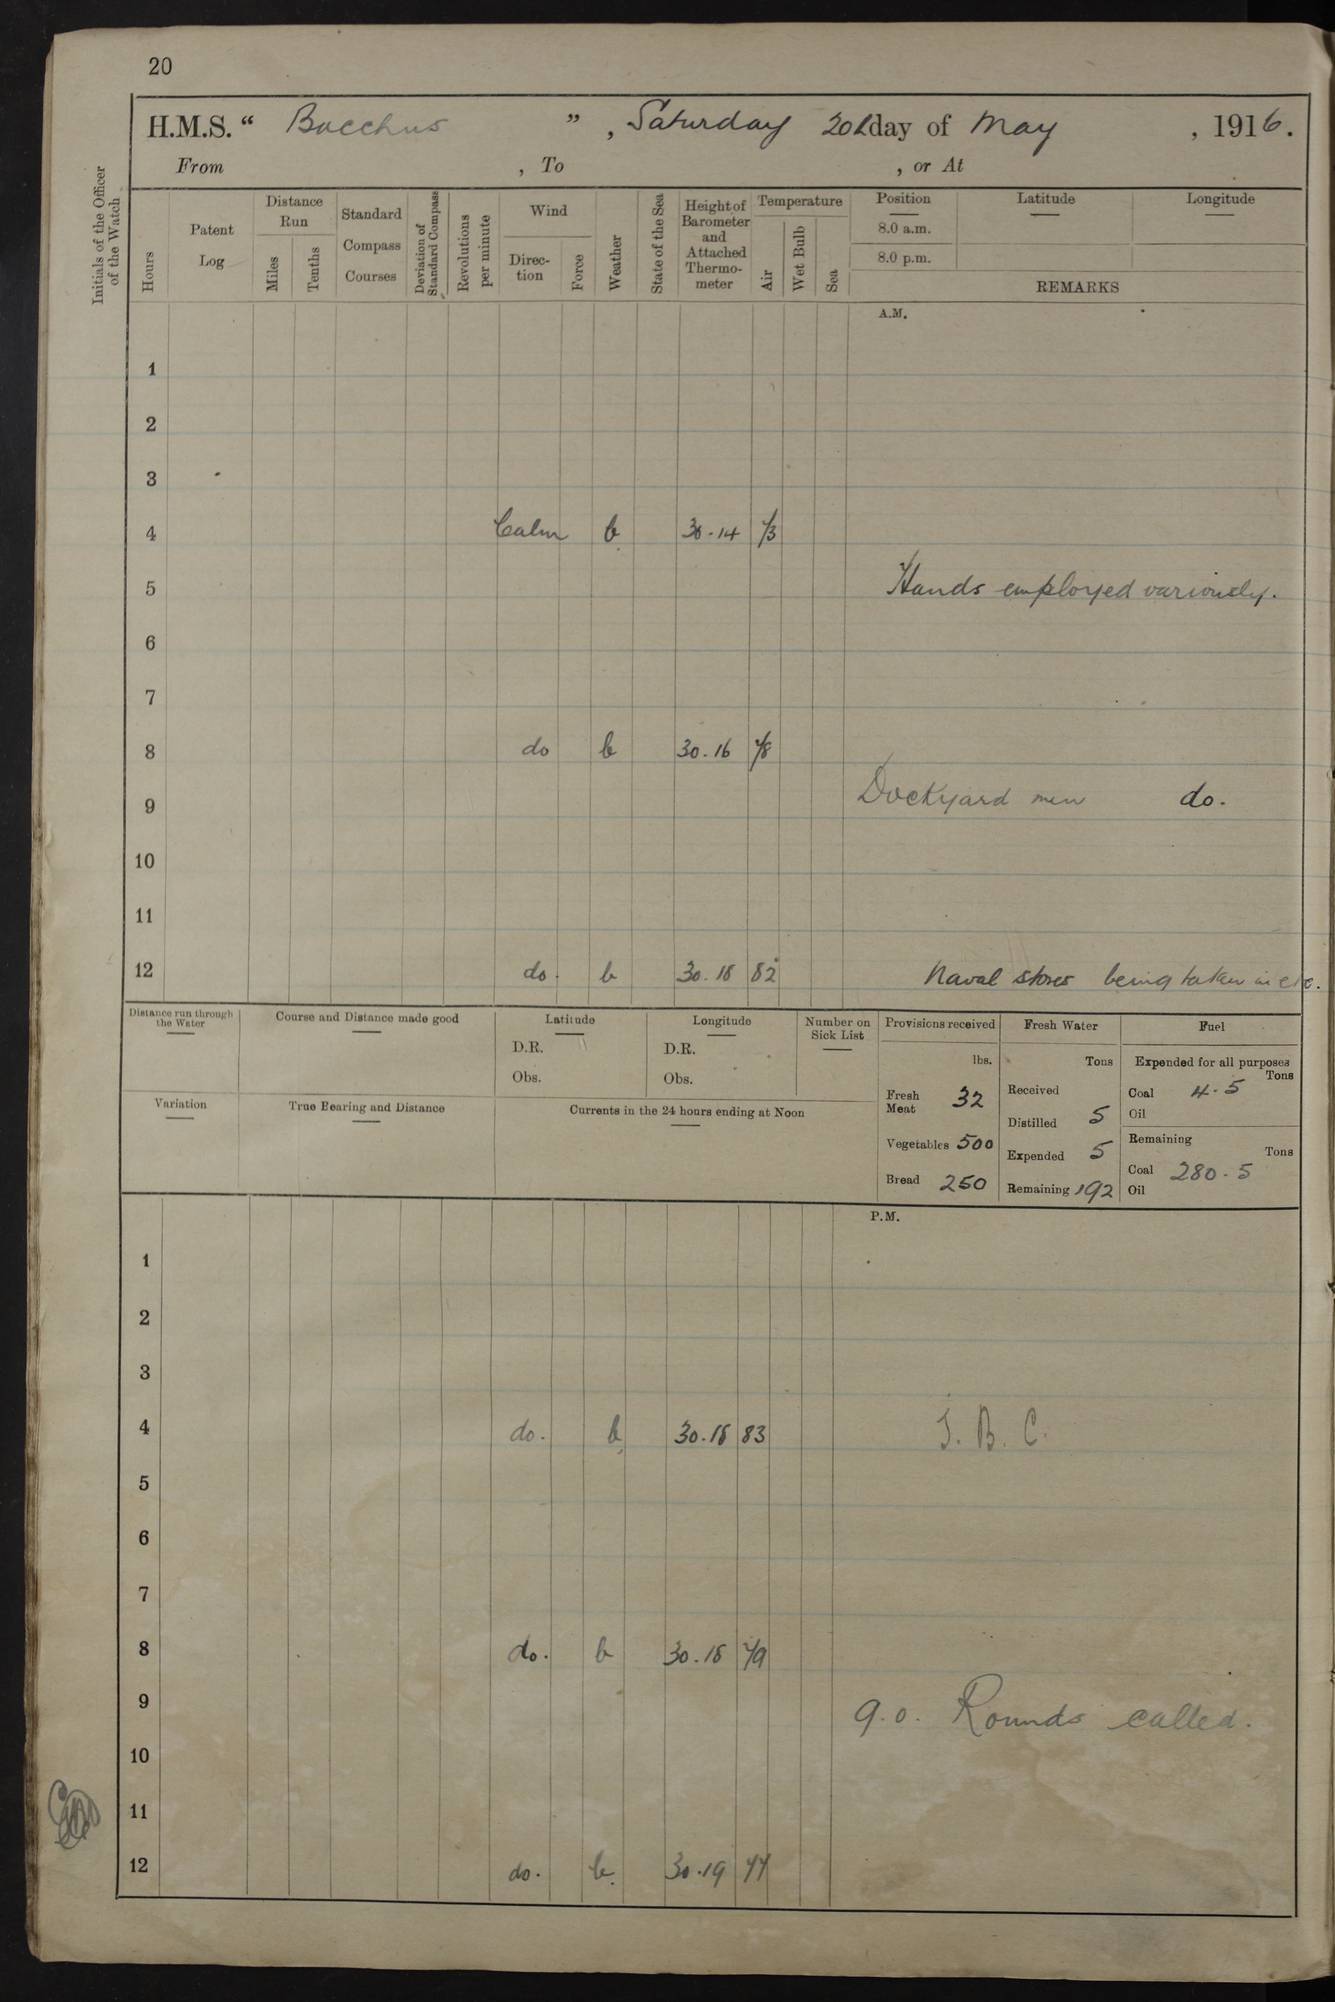 20
H.M.S. “ Bacchus ” , Saturday 20th day of May , 1916.
From , To , or At
Initials of the Officer of the Watch
Hours
Patent Log
Distance Run
Miles
Tenths
Standard Compass Courses
Deviation of Standard Compass
Revolutions per minute
Wind
Direction
Force
Weather
State of the Sea
Height of Barometer and Attached Thermometer
Temperature
Air
Wet Bulb
Sea
Position
8.0 a.m.
8.0 p.m.
Latitude
Longitude
REMARKS
A.M.
1
2
3
4 Calm b 30.14 73
5 Hands employed variously.
6
7
8 do b 30.16 78
9 Dockyard men do.
10
11
12 do. b 30.18 82 Naval stores being taken in etc.
Distance run through the Water
Course and Distance made good
Latitude
D.R.
Obs.
Longitude
D.R.
Obs.
Number on Sick List
Provisions received
lbs.
Fresh Meat 32
Vegetables 500
Bread 250
Fresh Water
Tons
Received
Distilled 5
Expended 5
Remaining 192
Fuel
Expended for all purposes
Tons
Coal 4.5
Oil
Remaining
Tons
Coal 280.5
Oil
Variation
True Bearing and Distance
Currents in the 24 hours ending at Noon
P.M.
1
2
3
4 do. b 30.18 83 J. B. C.
5
6
7
8 do. b 30.18 79
9 9.0. Rounds called.
10
11
12 do. b. 30.19 77